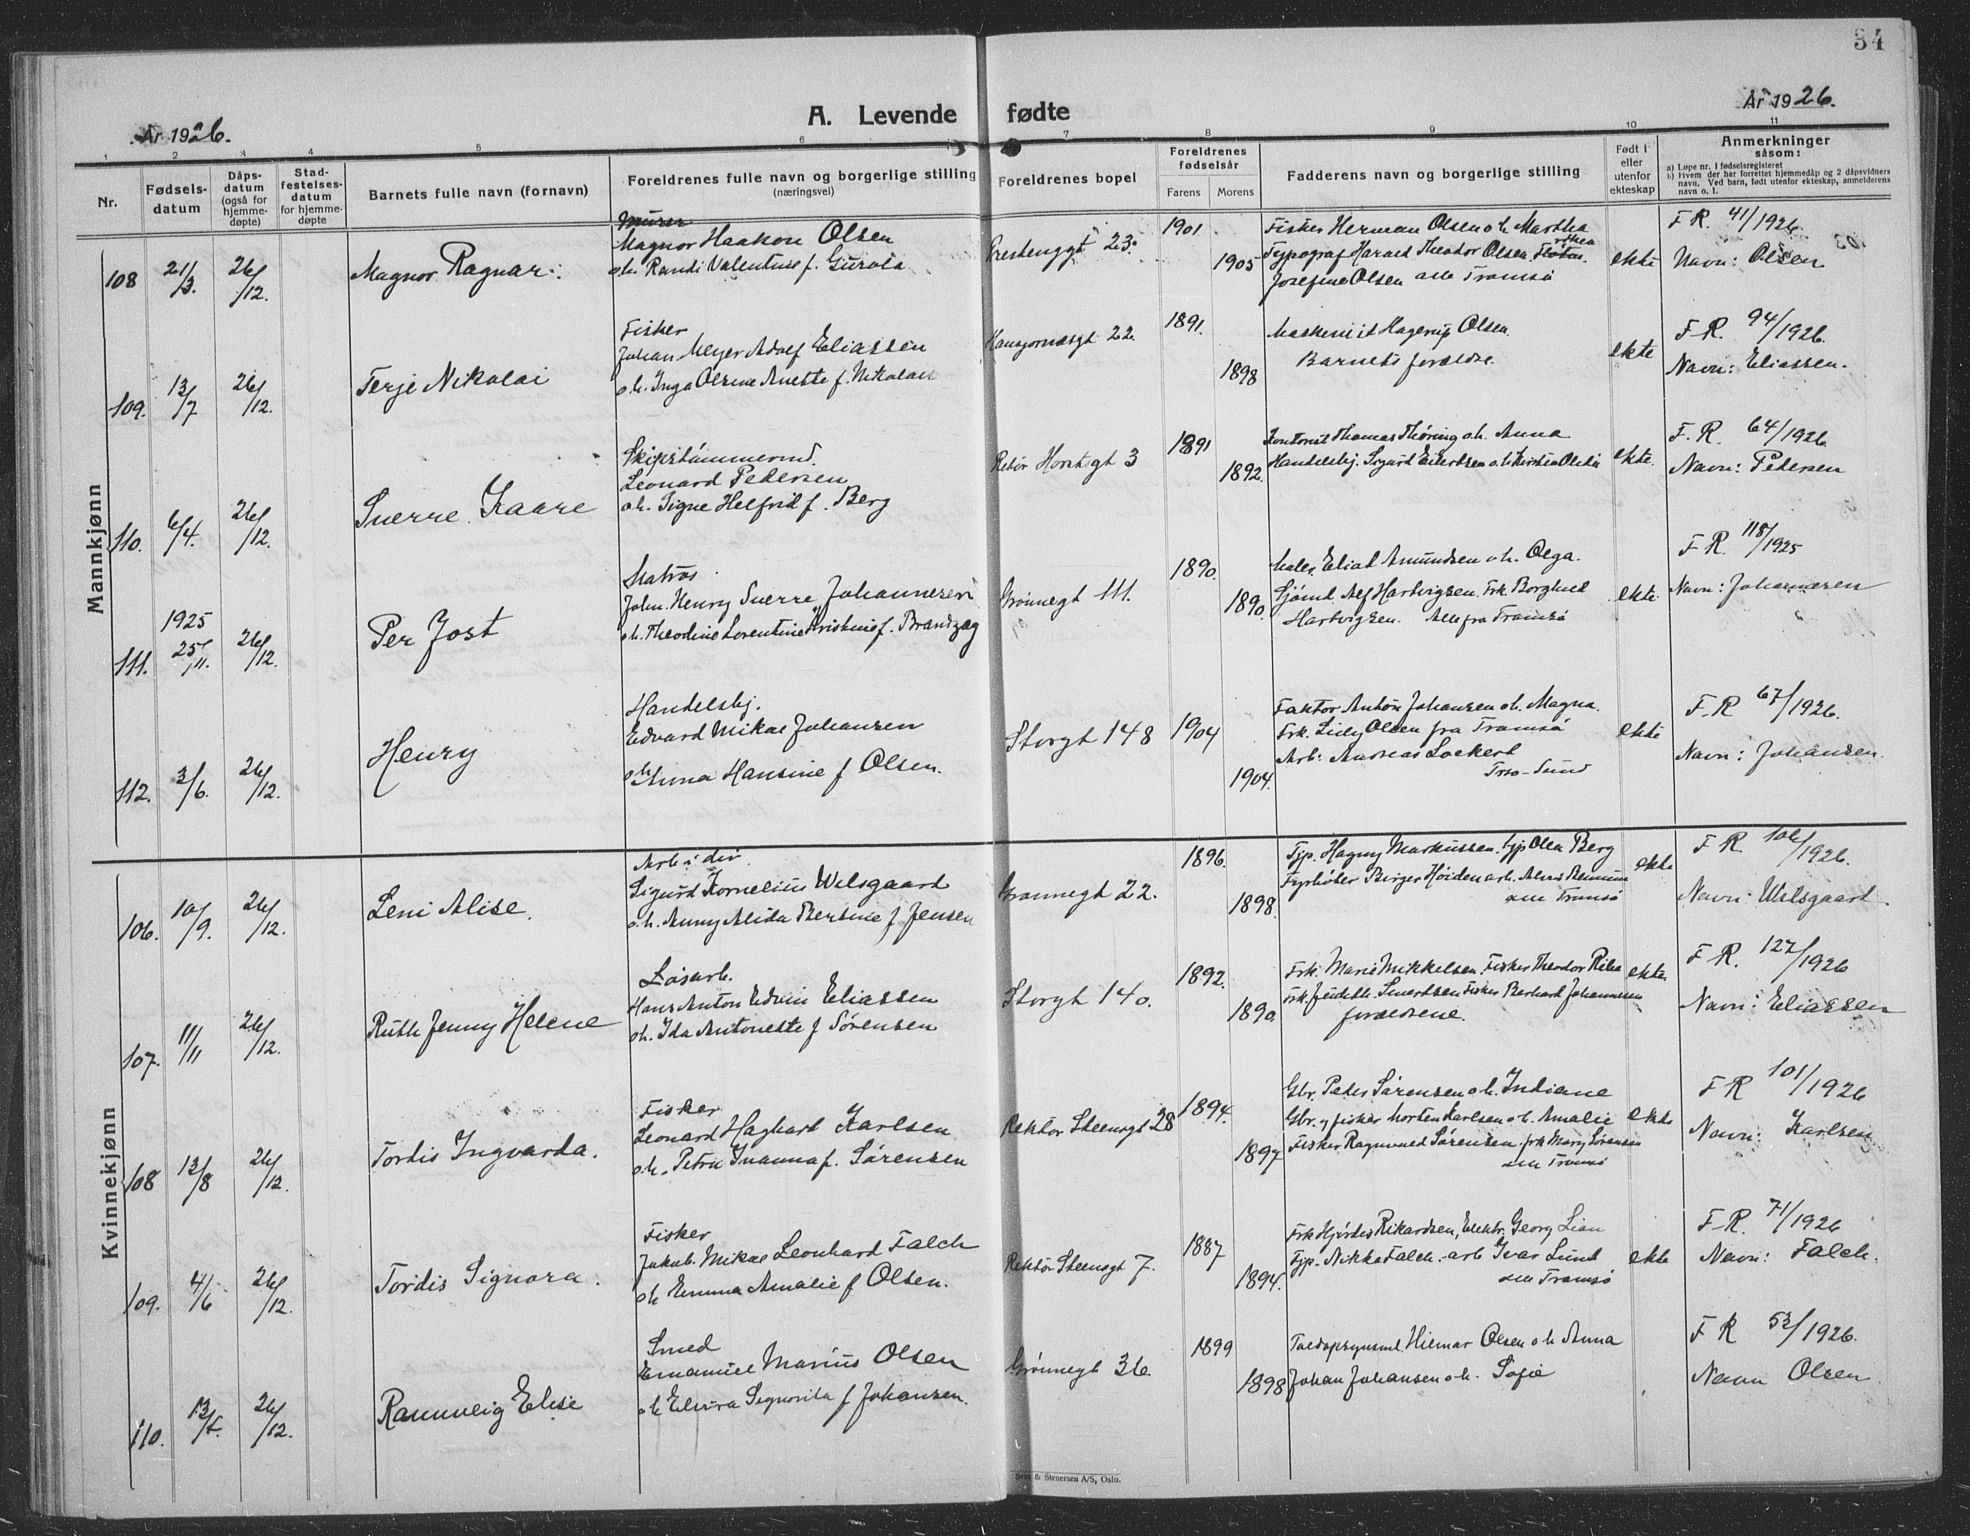 34
År 1926.
A. Levende fødte
År 1926.
1 2 3 4 5 6 7 8 9 10 11
Nr.
Fødsels-
datum
Dåps-
datum
(også for
hjemme-
døpte)
Stad-
festelses-
datum
for hjemme-
døpte
Barnets fulle navn (fornavn)
Foreldrenes fulle navn og borgerlige stilling
(næringsvei)
Foreldrenes bopel
Foreldrenes
fødselsår
Farens Morens
Fadderens navn og borgerlige stilling
Født i
eller
utenfor
ekteskap
Anmerkninger
såsom:
a) Løpe nr. i fødselsregisteret
b) Hvem der har forrettet hjemmedåp og 2 dåpsvidners
navn. Ved barn, født utenfor ekteskap, anmelderens
navn o. l.
Mannkjønn
108 21/3. 26/12.
Magnor Ragnar.
Murer
Magnor Haakon Olsen
o.h. Randi Valentine f.
23.
1901
1905
Fisker Herman Olsen o.h. Martha
Typograf Harald Theodor Olsen
Josefine Olsen alle Tromsø
ekte
F.R. 41/1926
Navn: Olsen
109. 13/7 26/12.
Terje Nikolai
Fisker
Johan Meyer Adolf Eliassen
o.h. Inga Olsine Anette f. Nikolai
22.
1891.
1898
Maskinist Hagerup Olsen.
Barnets forældre.
ekte
F.R. 94/1926.
Navn: Eliassen.
110. 6/4. 26/12.
Sverre Kaare
Skipstømmermd.
Leonard Pedersen
o.h. Signe Helfrid f. Berg
Rektor Horstsgt 3
1891
1892.
Kontorist Thomas Thøring o.h. Anna
Handelsbj. Sigurd Eilertsen o.h.
ekte.
F.R. 64/1926
Navn: Pedersen
111. 1925 25/11. 26/12.
Per Jost
Matros.
John Henry Sverre Johannesen
o.h. Theodine Lorentine Kristine f. Brandzæg
Grønnegt 111.
1890.
1890.
Maler Eliot Amundsen o.h. Olga.
Sjømd Alf Hartvigsen. Frk Borghild
Hartvigsen. Alle fra Tromsø
ekte.
F.R. 118/1925
Navn: Johannesen
112. 3/6. 26/12.
Henry
Handelsbj.
Edvard Mikal Johansen
o.h. Anna Hansine f Olsen.
Storgt 148
1904
1904.
Faktor Anton Johansen o.h. Magna.
Frk. Lilly Olsen fra Tromsø
Arb. Andreas Lockert
Trso-Sund
ekte
F.R 67/1926.
Navn: Johansen.
Kvinnekjønn
106. 10/9. 26/12.
Leni Alise.
Arb i div.
Sigurd Kornelius Wilsgaard
o.h. Anny Alida Bersine f Jensen
Grønnegt 22.
1896.
1898.
Tjp. Hagny Markussen. tjp Olea Berg
Fyrbøter Birger Høiden
alle Tromsø
ekte
F.R. 106/1926.
Navn: Wilsgaard.
107. 11/11 26/12.
Ruth Jenny Helene
Løsarb.
Hans Anton Edvin Eliassen
o.h. Ida Antonette f Sørensen
Storgt 140.
1892.
1890.
Frk. Marie Mikkelsen. Fisker Theodor
Sivertsen Fisker Berhard Johannessen
forældrene.
ekte
F.R. 127/1926
Navn: Eliassen
108 13/8 26/12.
Tordis Ingvarda.
Fisker
Leonard Hagbart Karlsen
o.h. Petra Ivanna f. Sørensen
Rektor Steensgt 28
1894.
1897
Gbr. Peter Sørensen o.h. Indiane
Gbr. og fisker Morten Karlsen o.h. Amalie
Fisker Ragnvald Sørensen. frk Mary Sørensen
alle Tromsø
ekte
F R 101/1926
Navn: Karlsen
109. 4/6 26/12.
Tordis Signora.
Fisker
Jakob Mikal Leonhard Falch
o.h Emma Amalie f Olsen.
Rektor Steensgt 7.
1887
1894.
Frk Hjørdis Rikardsen, Elektr. Georg Lian
Tjp. Nikka Falch. arb Ivar Lund
alle Tromsø
ekte
F.R. 71/1926
Navn: Falch.
110. 13/5. 26/12.
Rannveig Elise
Smed
Emanuel Marius Olsen
o.h Elvira Signorita f Johansen.
Grønnegt 36.
1899
1898
Hilmar Olsen o.h Anna
Johan Johansen o.h. Sofie
F R 53/1926.
Navn Olsen
& Stenersen A/S, Oslo.